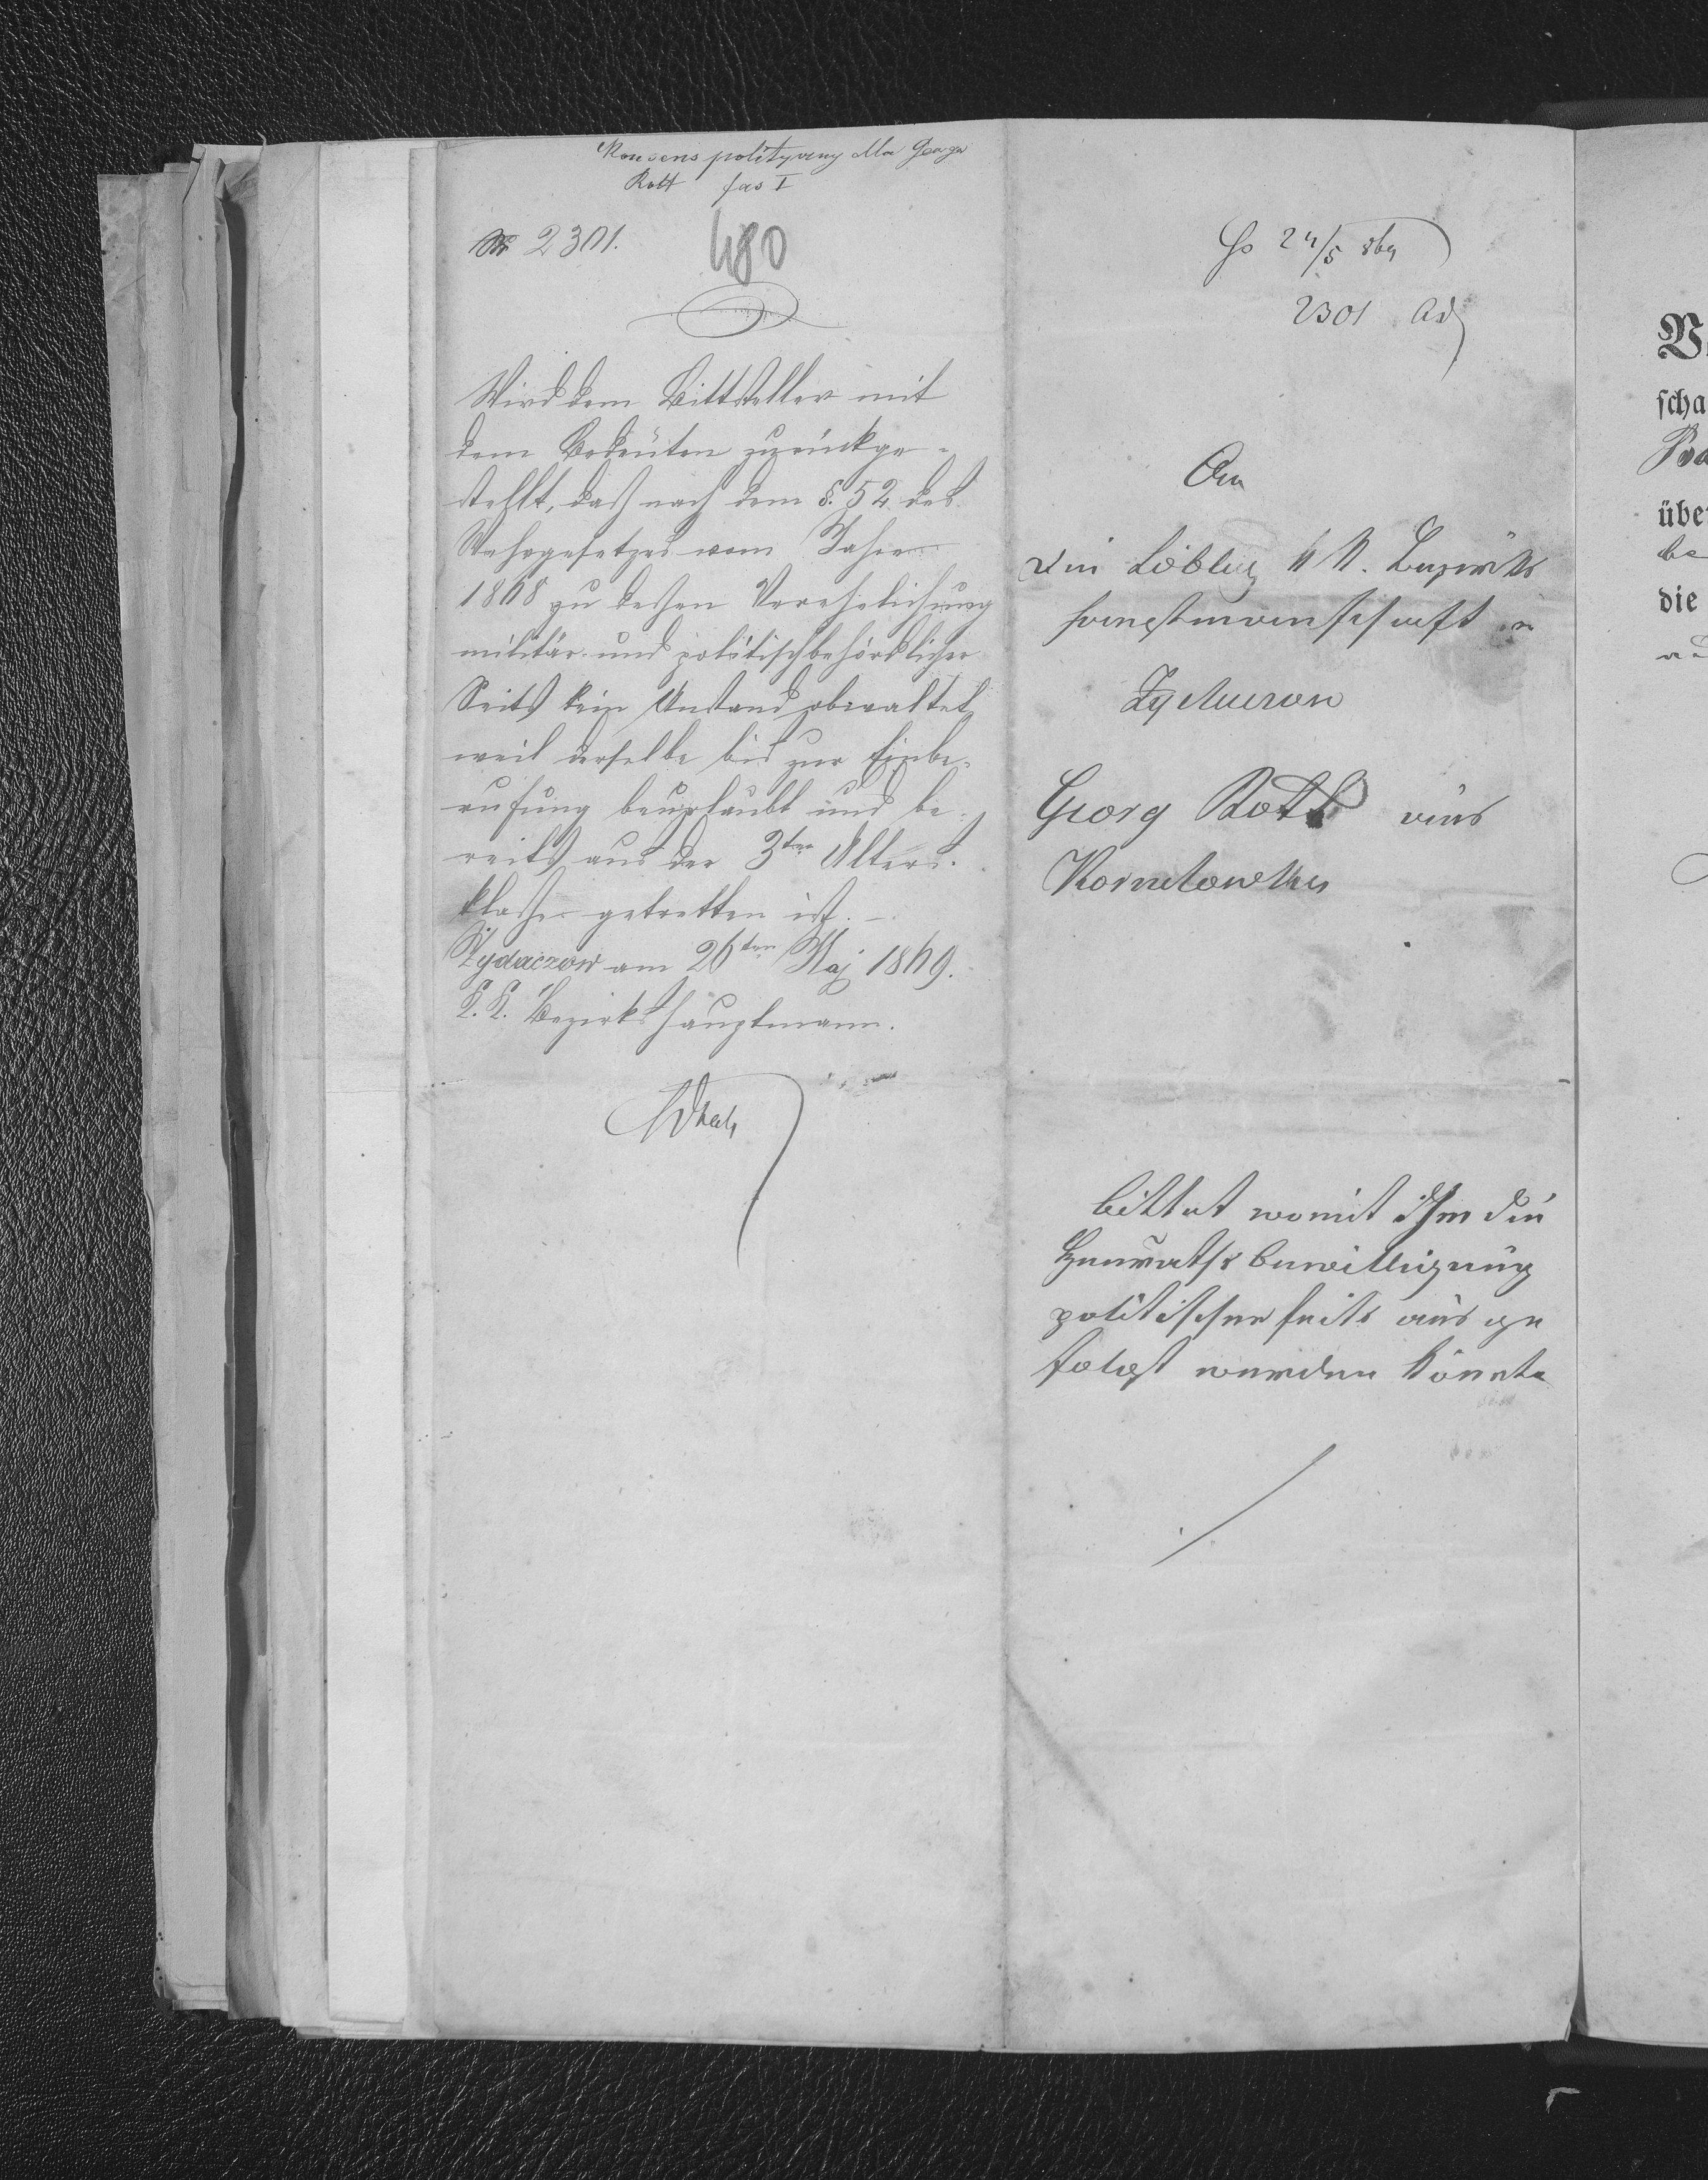 Konsens polityczny dla Georga
Rott fas I
Nr 2301.
480
Wird dem Bittsteller mit
dem Bedeuten zurückge-
stellt, daß nach dem §. 52 des
Wehrgesetzes vom Jahre
1868 zu dessen Verehelichung
militär- und politischbehördlicher
Seits kein Anstand obwaltet
weil derselbe bis zur Einbe-
rufung beurlaubt und be-
reits aus der 3ten Alters-
klasse getretten ist. –
Żydaczow am 26ten Maj 1869.
K. K. Bezirkshauptmann.
24/5 869
2301
An
die Löblig K K. Bezirks
hauptmannschaft in
Georg Rott aus
bittet womit ihm die
Heuraths bewilligung
politischer seits aus ge
folgt werden könnte
V
scha
übe
be
die